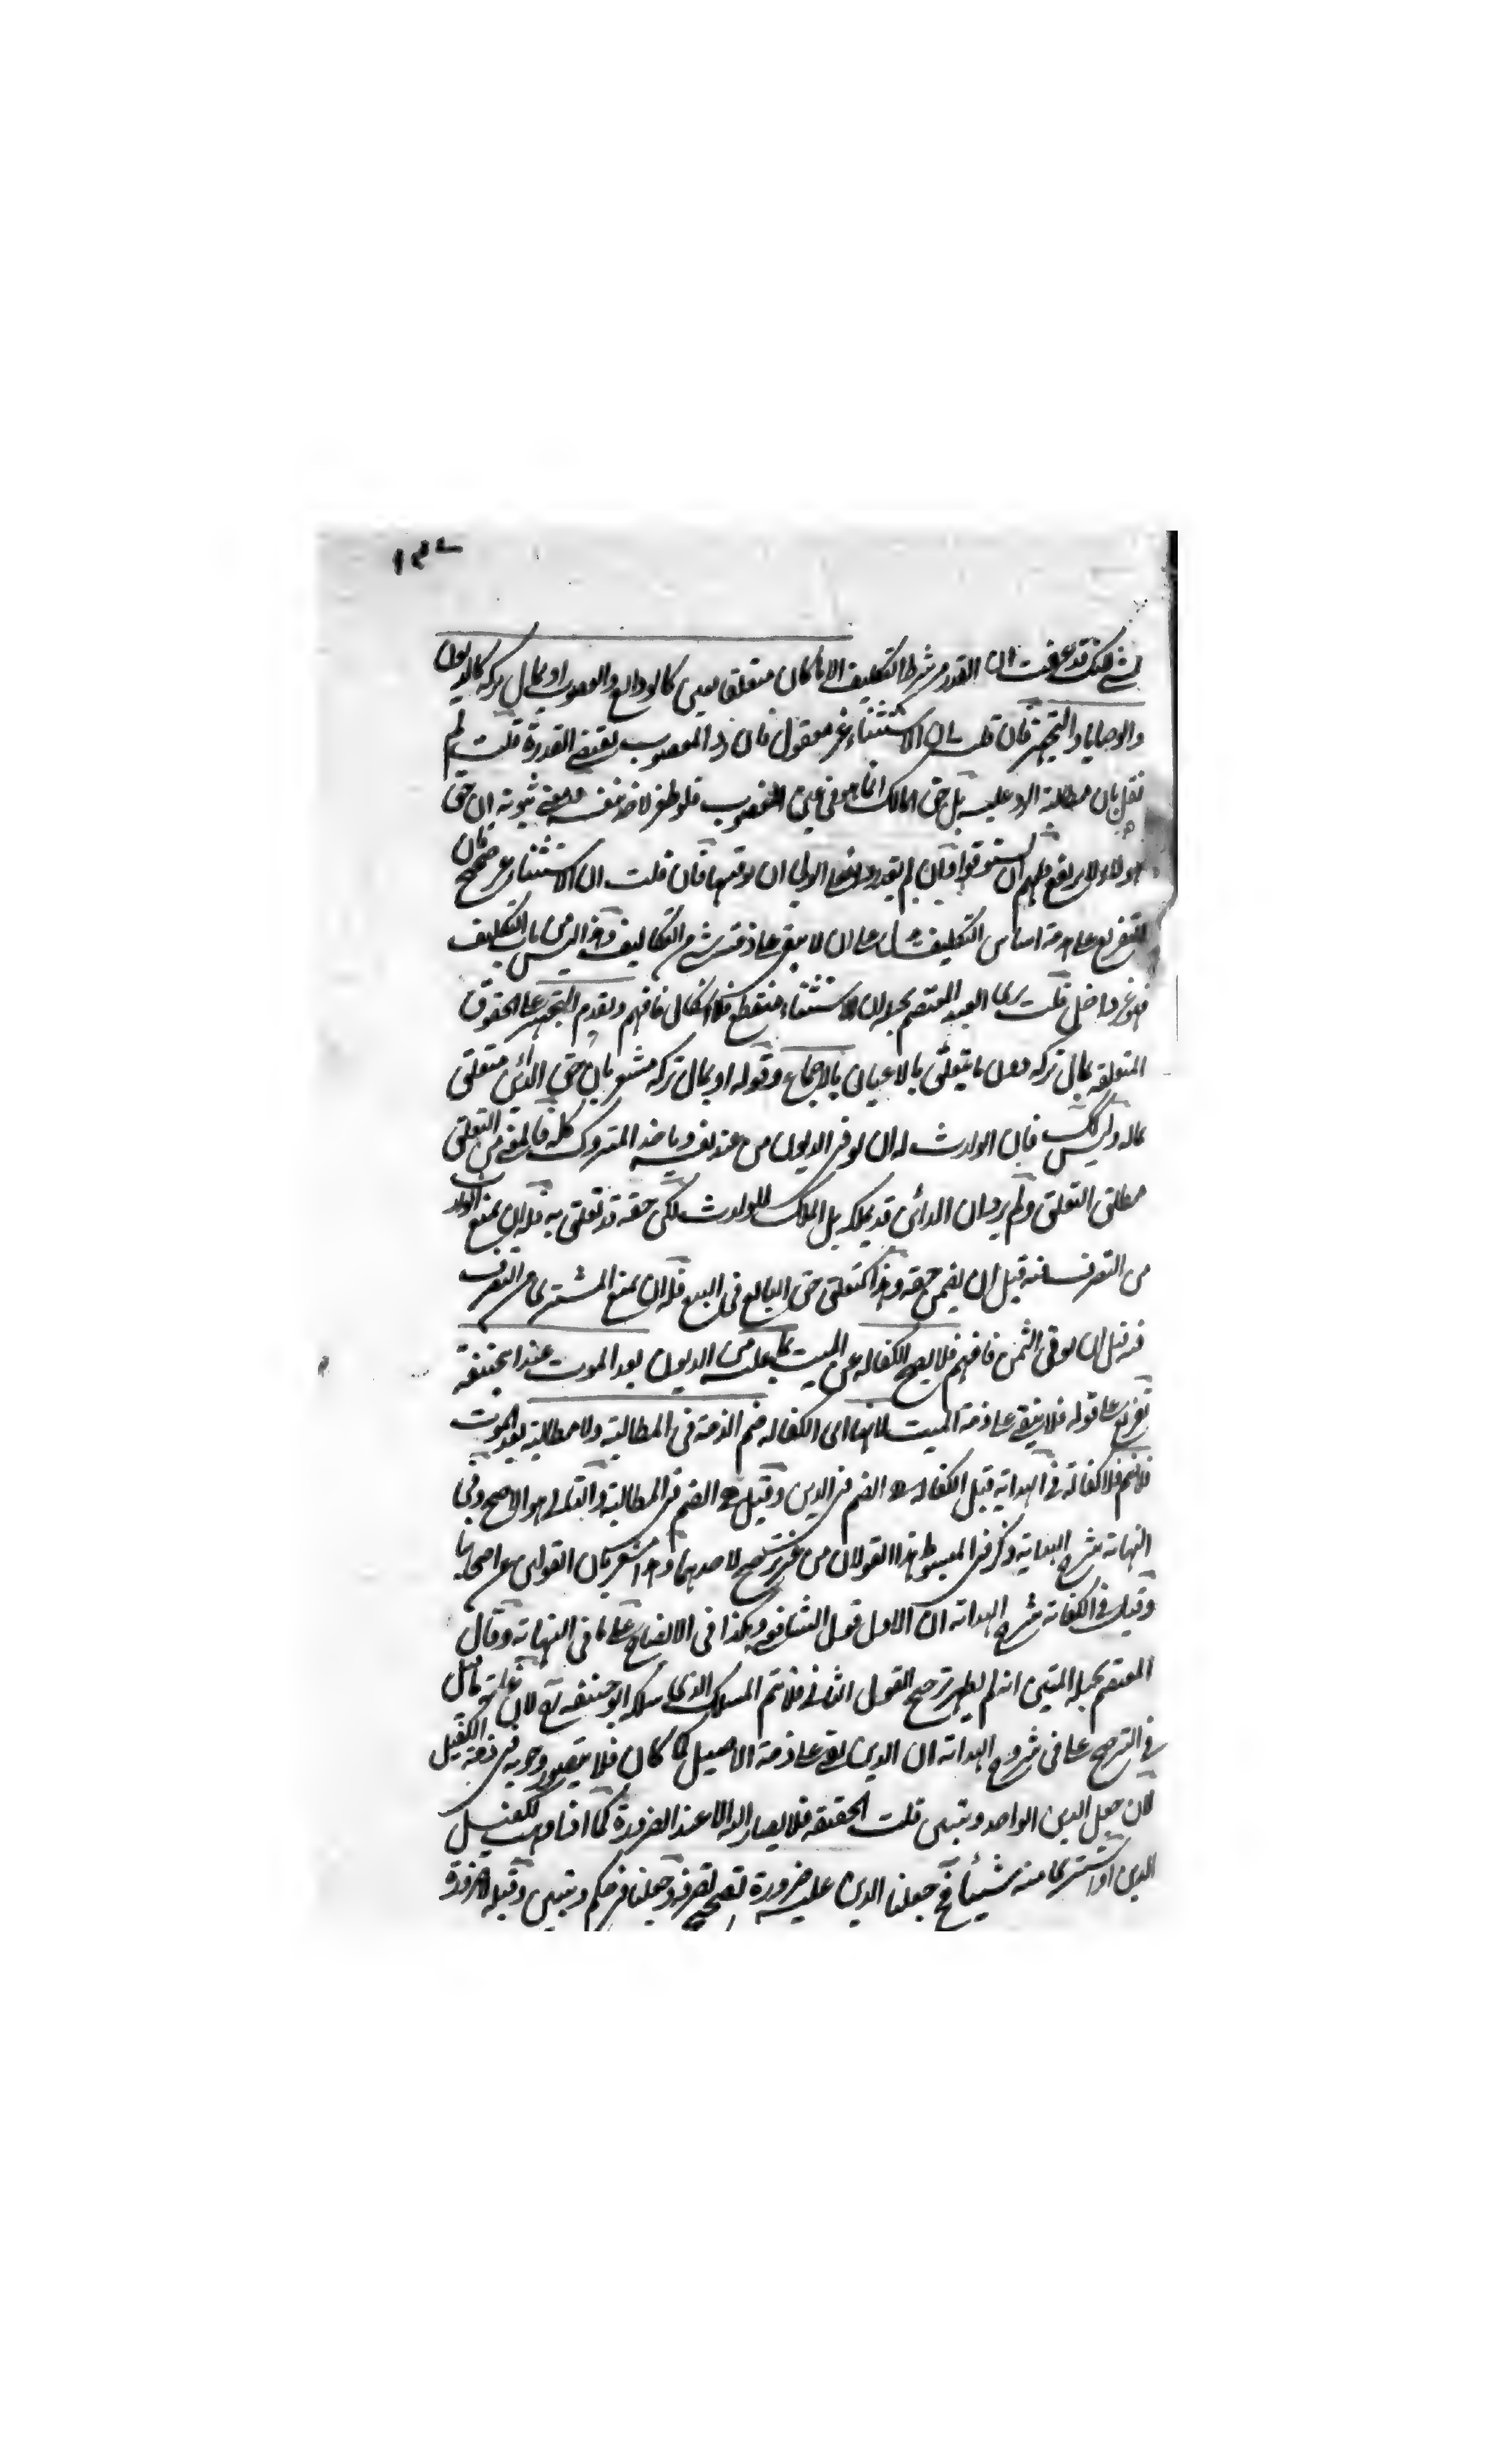 ١٣٧
لشي فانك قد عرفت ان القدرة شرط التكليف الا ما كان متعلق بعين كالودايع والغصوب او بمال تركه كالديون
والوصايا والتجهيز فان قلت ان الاستثناء غير معقول فان رد المغصوب يقتضي القدرة قلت لم
نقل بان مطالبة الرد عليه بل حق المالك انما هو في عين المغصوب فلو ظفر لاخذ بنفسه ومعنى ثبوته ان حق
هؤلاء لا يرتفع فلهم ان يستوفوا وان لم يقدروا فعلى الولي ان يوفيها فان قلت ان الاستثناء غير صحيح فان
التفريع على عدم اساس التكليف على ان لا يبقى على ذمته شي من التكاليف وهذا ليس من باب التكليف
فهو غير داخل قلت العبد المعتصم بحبله ان الاستثناء منقطع فلا اشكال فافهم ويقدم التجهيز على الحقوق
المتعلقة بمال تركه دون ما يتعلق بالاعيان بالاجماع وقوله او بمال تركه مشعر بان حق الدائن متعلق
بماله وليس كذلك فان الوارث له ان يوفي الديون من عند نفسه وياخذ المتروك كله فالمعني من التعلق
مطلق التعلق ولم يرد ان الدائن قد يملكه بل الملك للوارث لكن حقه قد تعلق به فله ان يمنع الوارث
من التصرف فيه قبل ان يقضى حقه وهذا كتعلق حق البايع في البيع فله ان يمنع المشتري من التصرف
فيه قبل ان يوفي الثمن فافهم فلا يصح الكفاله عن الميت بما عليه من الديون بعد الموت عند ابي حنيفة
تفريع على قوله فلا يبقى على ذمة الميت لانها اي الكفاله ضم الذمة في المطالبة ولا مطالبة بعد الموت
فلا ضم فلا كفالة في الهداية قيل الكفاله هي الضم في الدين وقيل هي الضم في المطالبة والثاني هو الاصح وفي
النهاية شرح الهداية وذكر في المبسوط هذا القولان من غير ترجيح لاحدهما وهذا مشعر بان القولين عن اصحابنا
وقيل في الكفاية شرح الهداية ان الاول قول الشافعي وهكذا في الايضاح على ما في النهاية وقال
المعتصم بحبله المتين انه لم يظهر ترجيح القول الثاني فلا يتم المسلك الذي سلكه ابو حنيفه لان غاية ما قيل
في الترجيح على ما في شروح الهداية ان الدين بقي على ذمة الاصيل كما كان فلا يتصور وجوبه في ذمة الكفيل
لان جعل الدين الواحد دينين قلت الحقيقة فلا يصار اليه الا عند الضرورة كما اذا وهب للكفيل
الدين او اشترى منه شيئا فح جعلنا الدين عليه ضرورة تصحيح تصرفه وجعلنا في حكم دينين وقبله لا ضرورة